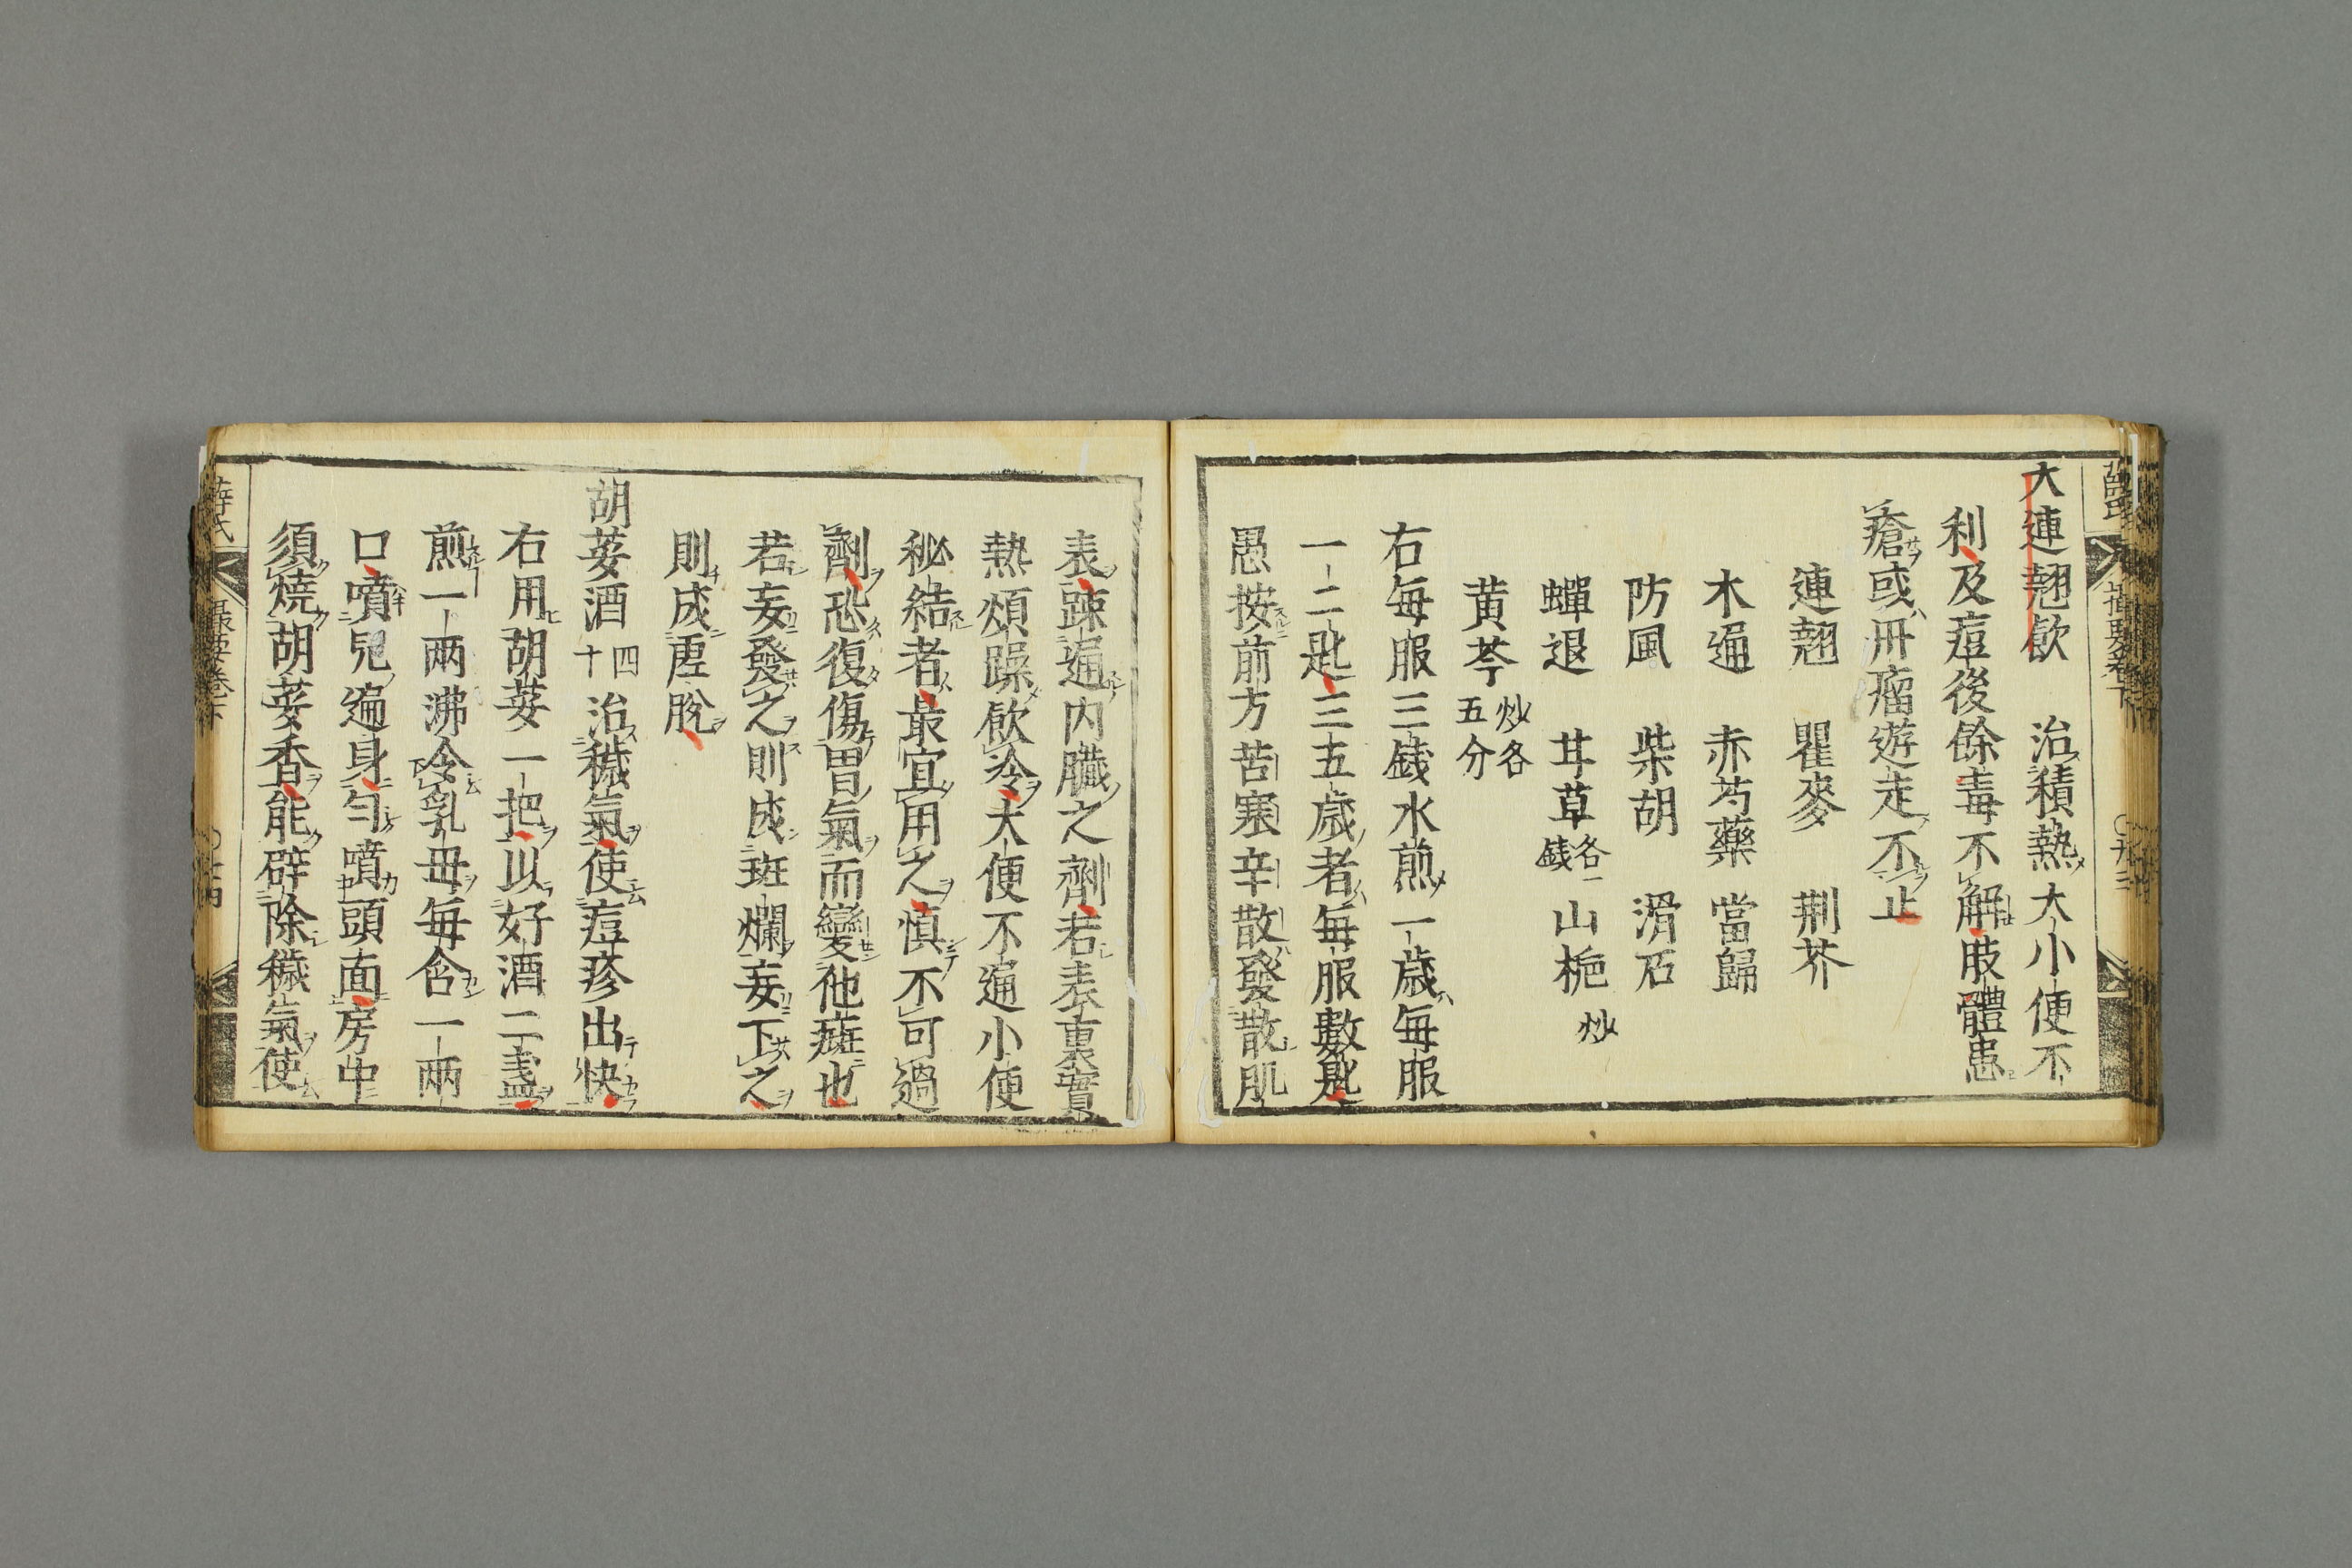 大連翹飲　治積熱大小便不
利及痘後餘毒不解肢體患
瘡或丹瘤遊走不止
連翹　瞿麥　荆芥
木通　赤芍藥　當歸
防風　柴胡　滑石
蟬退　甘草各一錢　山梔炒
黄芩炒各五分
右每服三錢水煎一歲每服
一二匙三五歲者每服數匙
愚按前方苦寒辛散發散肌
表踈通内臓之劑若表裏實
熱煩躁飲冷大便不通小便
秘結者最宜用之慎不可過
劑恐復傷胃氣而變他症也
若妄發之則成斑爛妄下之
則成虛脫
胡荽酒四十　治穢氣使痘疹出快
右用胡荽一把以好酒二盞
煎一兩沸令乳母每含一兩
口噴兒遍身勻噴頭面房中
須燒胡荽香能辟除穢氣使
薛氏　攝要卷下